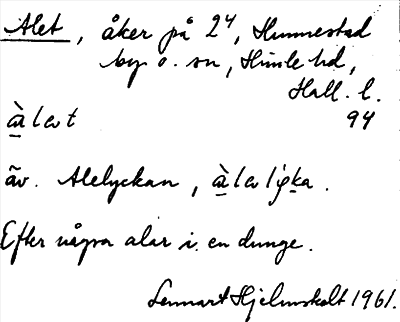 Alet, åker på 2⁴, Hunnestad
by o. sn, Himle hd,
Hall. l.
à̱lat 94
äv. Alelyckan, à̱laly̱ka.
Efter några alar i en dunge.
Lennart Hjelmstedt 1961.